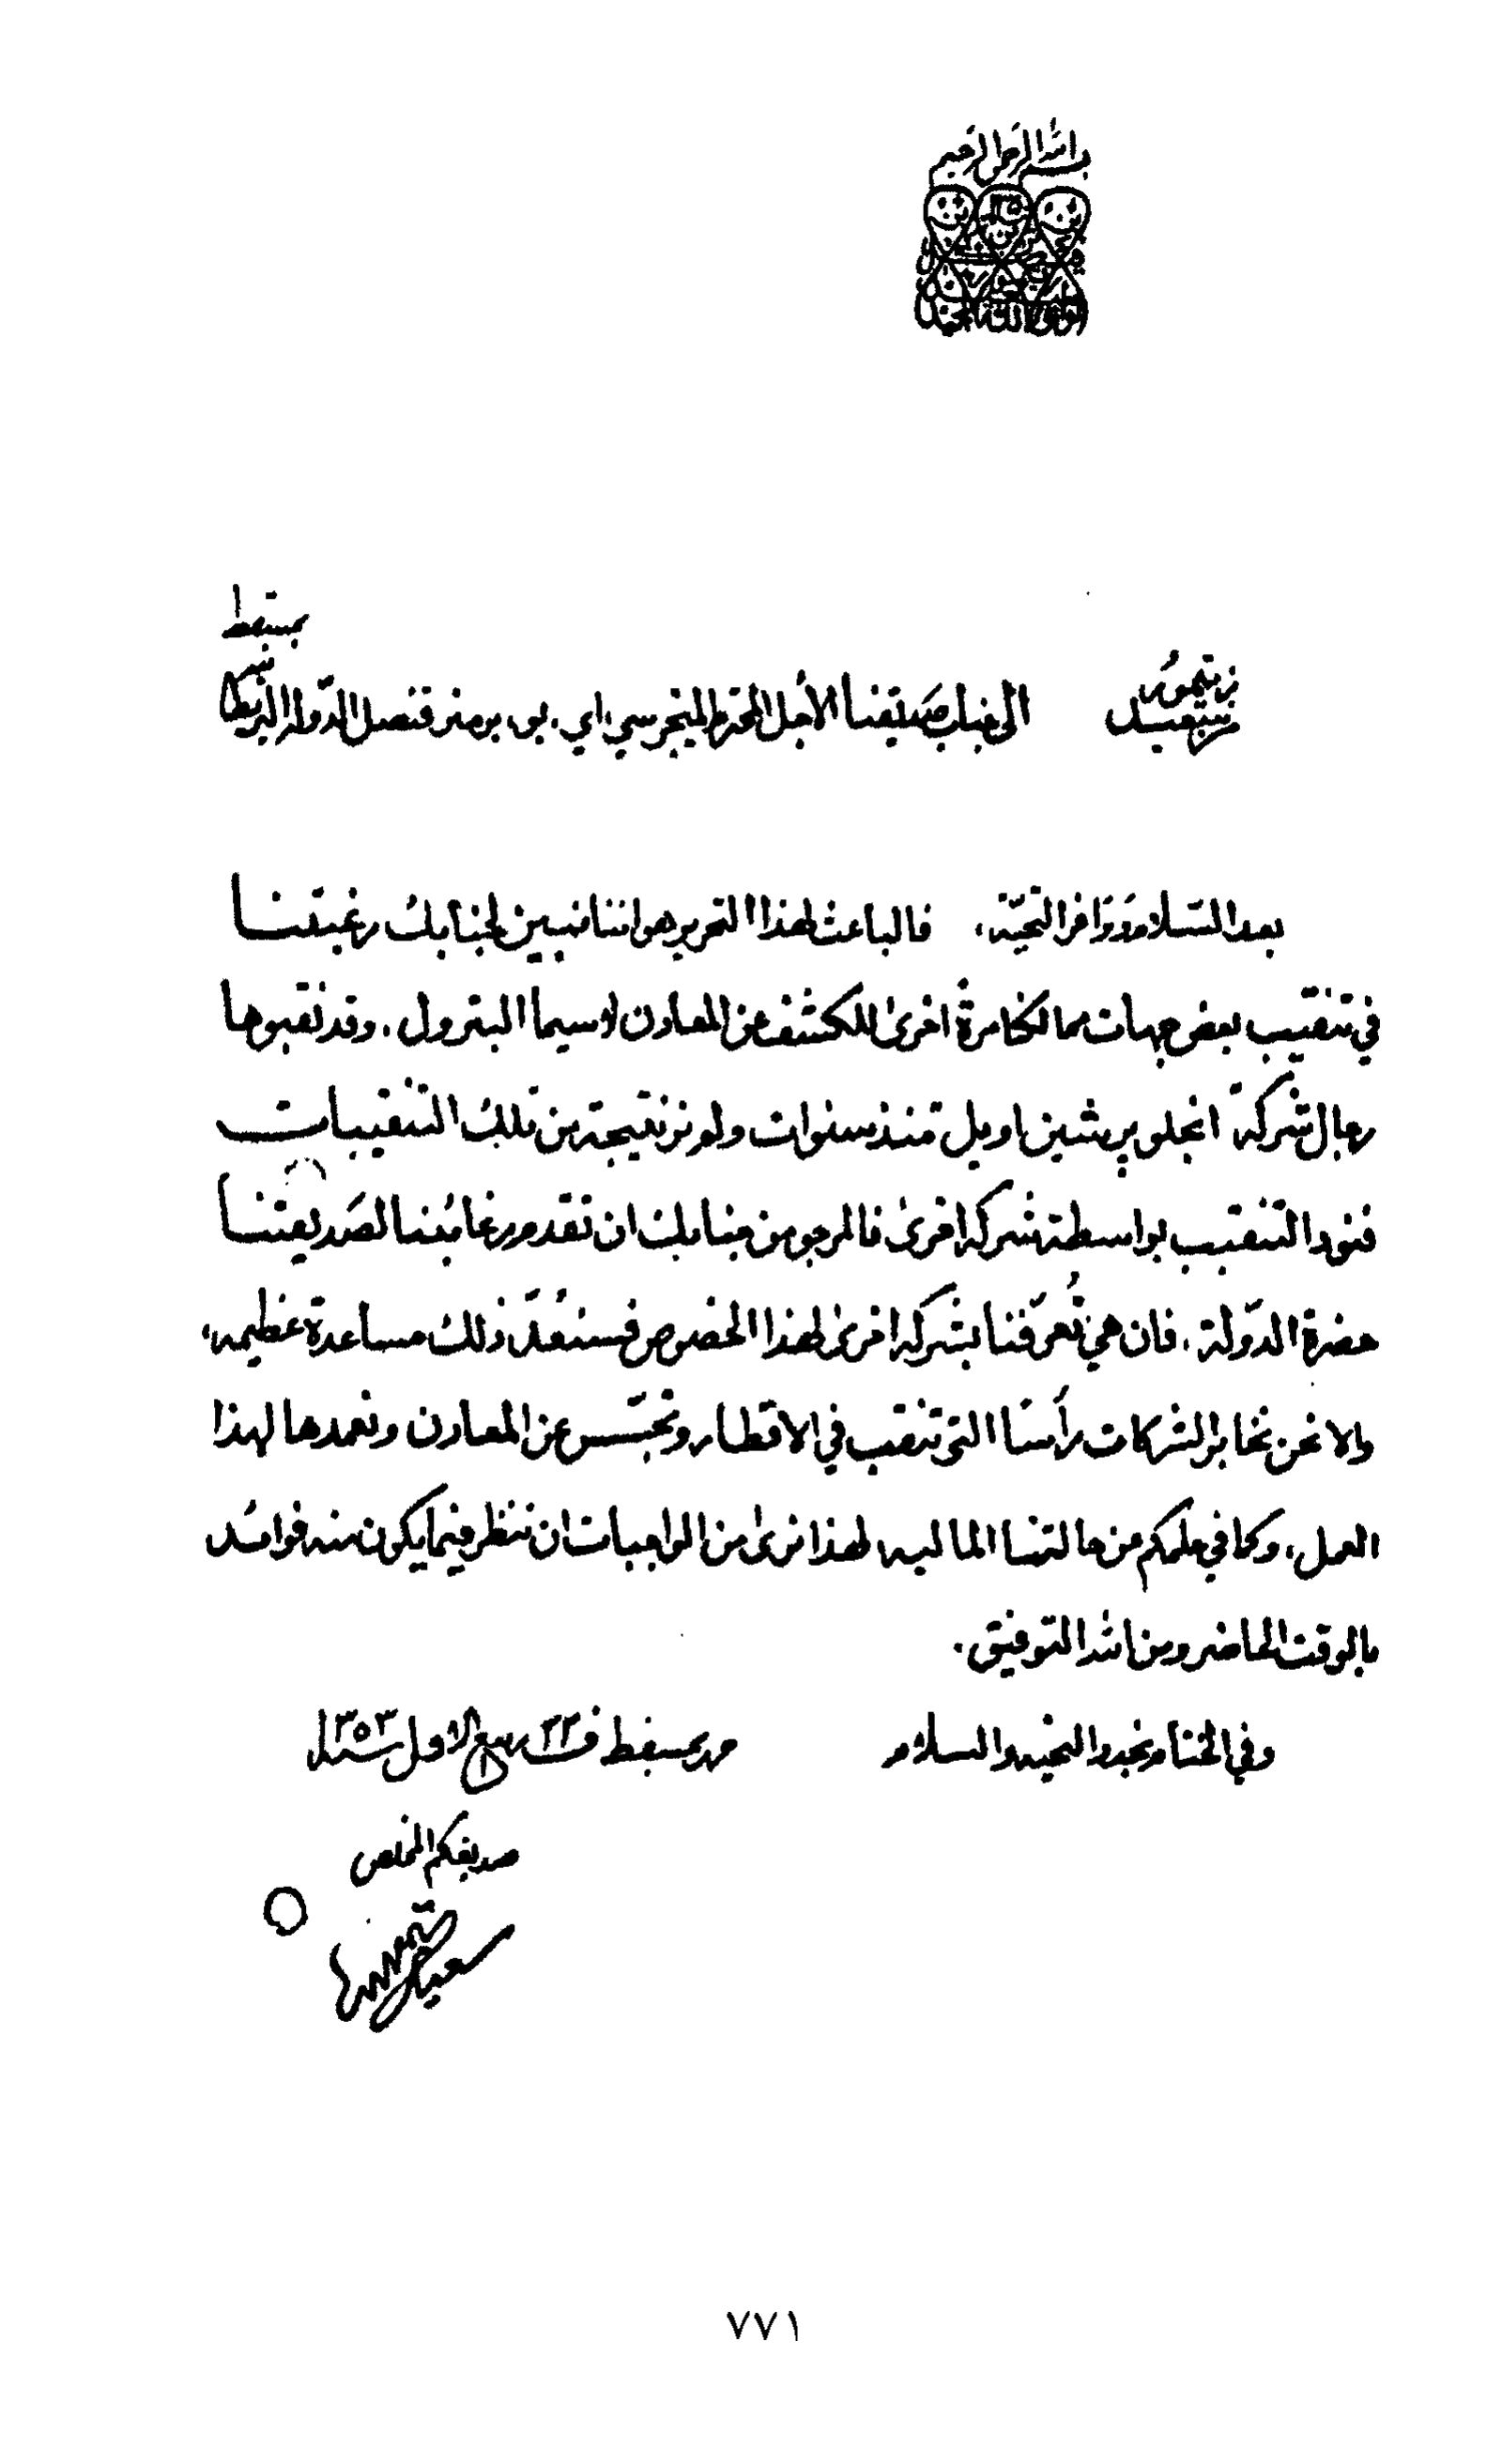 بسم الله الرحمن الرحيم
من سعيد بن تيمور
الى جناب صديقنا الأجل المحترم الميجر سي. اي. بر. بريمنر قنصل الدولة البريطانية بمسقط
بعد السّلام ووافر التحيّة، فالباعث لهذا التحرير هو اننا نبين لجنابك رغبتنا
في تنقيب بعض جهات ممالكنا مرةً اخرى للكشف عن المعادن لا سيما البترول. وقد نقبوها
رجال شركة انجلو پرشين اويل منذ سنوات ولم نر نتيجة من تلك التنقيبات
فنود التنقيب بواسطة شركة اخرى فالمرجو من جنابك ان تقدم رغائبنا لصديقتنا
حضرة الدّولة. فان هي تُعرّفنا بشركة اخرى لهذا الخصوص فسنعُدّ ذلك مساعدة عظيمه،
والا نحن نخابر الشركات رأسًا التي تنقب في الاقطار وتجسّس عن المعادن ونعمدها لهذا
العمل، وكما في علمكم من حالتنا الماليه لهذا نرى من الواجبات ان ننظر فيما يكون منه فوائد
بالوقت الحاضر ومن الله التوفيق.
وفي الختام نجدد التحيه والسلام حرر بمسقط في ٢٢ ربيع الاول سنة ١٣٥٣
صديقكم المخلص
سعيد بن تيمور
٧٧١